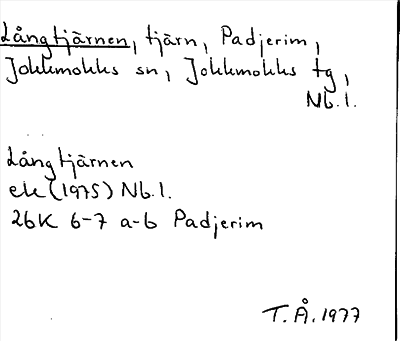 Långtjärnen, tjärn, Padjerim,
Jokkmokks sn, Jokkmokks tg,
Nb.l.
Långtjärnen
ek (1975) Nb.l.
26K 6-7 a-b Padjerim
T.Å. 1977